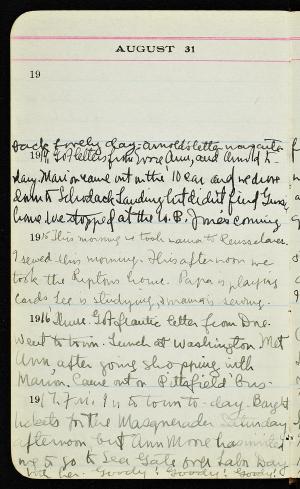 AUGUST 31
19
back. Lovely day. Arnold's letter
1914 Got letters from Ann, and Arnold to-
day. Marion came out on the 10 car and we drove
down to Schodack Landing but didn't find
home. We stopped at the W. B. Jones coming
1915 This morning I took to Rensselaer.
I sewed this morning. This afternoon we
took the Riptons home. Papa is playing
cards Lee is studying, & mama is sewing.
1916 Thurs. Got frantic letter from Doe.
Went to town. Lunch at Washington. Met
Ann, after going shopping with
Marion. Came out on Pittsfield Bus-
1917. Fri. I to town to-day. Bought
tickets for the Masquerader Saturday
afternoon but Ann Moore has invited
me to go to Sea Gate over Labor Day
her. Goody! Goody! Goody!